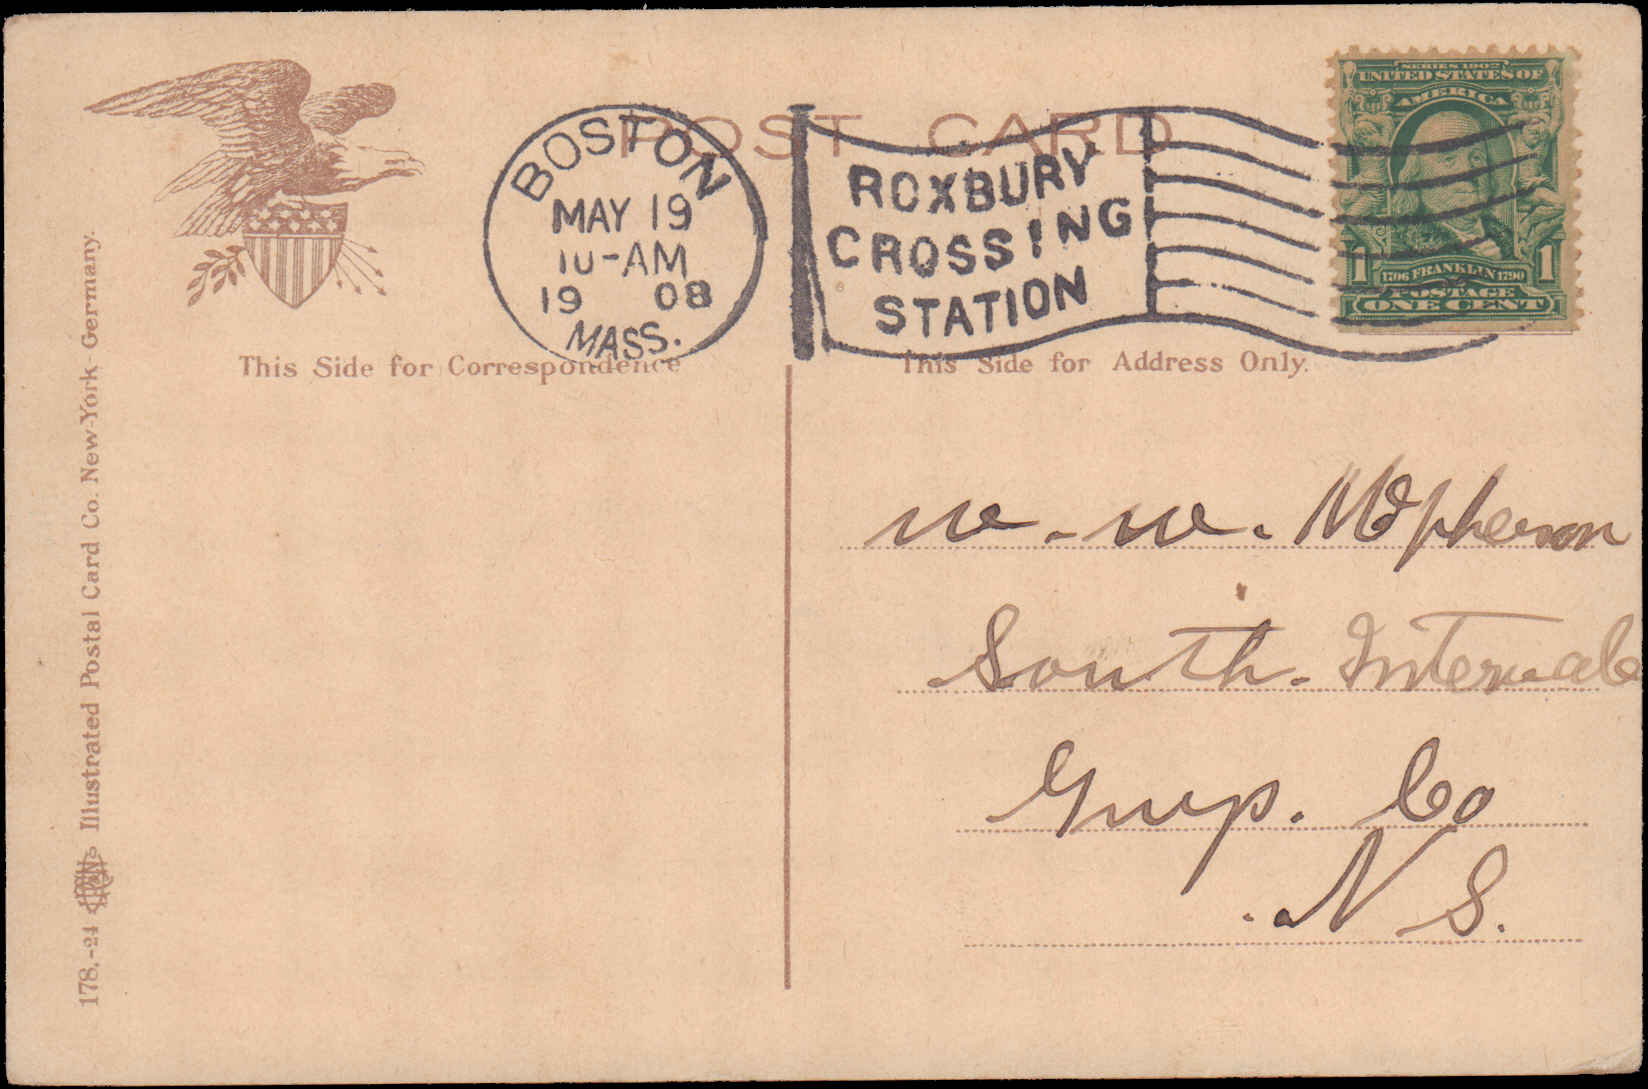 POST CARD
BOSTON
MAY 19
10-AM
19 08
MASS.
ROXBURY
CROSSING
STATION
SERIES 1902
UNITED STATES OF
AMERICA
1 1
1706 FRANKLIN 1790
POSTAGE
ONE CENT
This Side for Correspondence
This Side for Address Only.
W. W. McPherson
South.
Co
N S.
178.-24 Illustrated Postal Card Co. New-York-Germany.